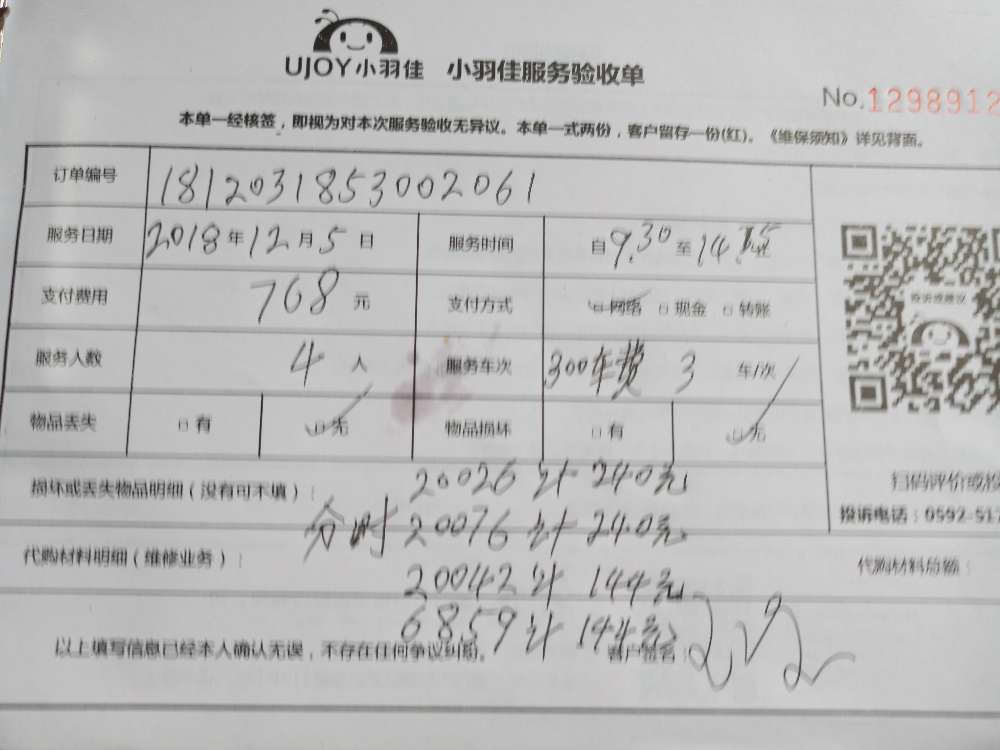 UJOY小羽佳 小羽佳服务验收单
No.1298912
本单一经核签，即视为对本次服务验收无异议。本单一式两份，客户留存一份(红)。《维保须知》详见背面。
订单编号 181203185300206 1
服务日期 2018年12月5日 服务时间 自9.30至14
支付费用 768元 支付方式 网络 现金 转账
服务人数 4人 服务车次 300车费 3 车/次
物品丢失 有 无 物品损坏 有 无
损坏或丢失物品明细（没有可不填）： 20026 计 240元
扫码评价或投
分时 20076 计 240元
投诉电话：0592-517
代购材料明细（维修业务）： 20042 计 144元
代购材料总额：
6859 计 144元
以上填写信息已经本人确认无误，不存在任何争议纠纷。 客户签名：